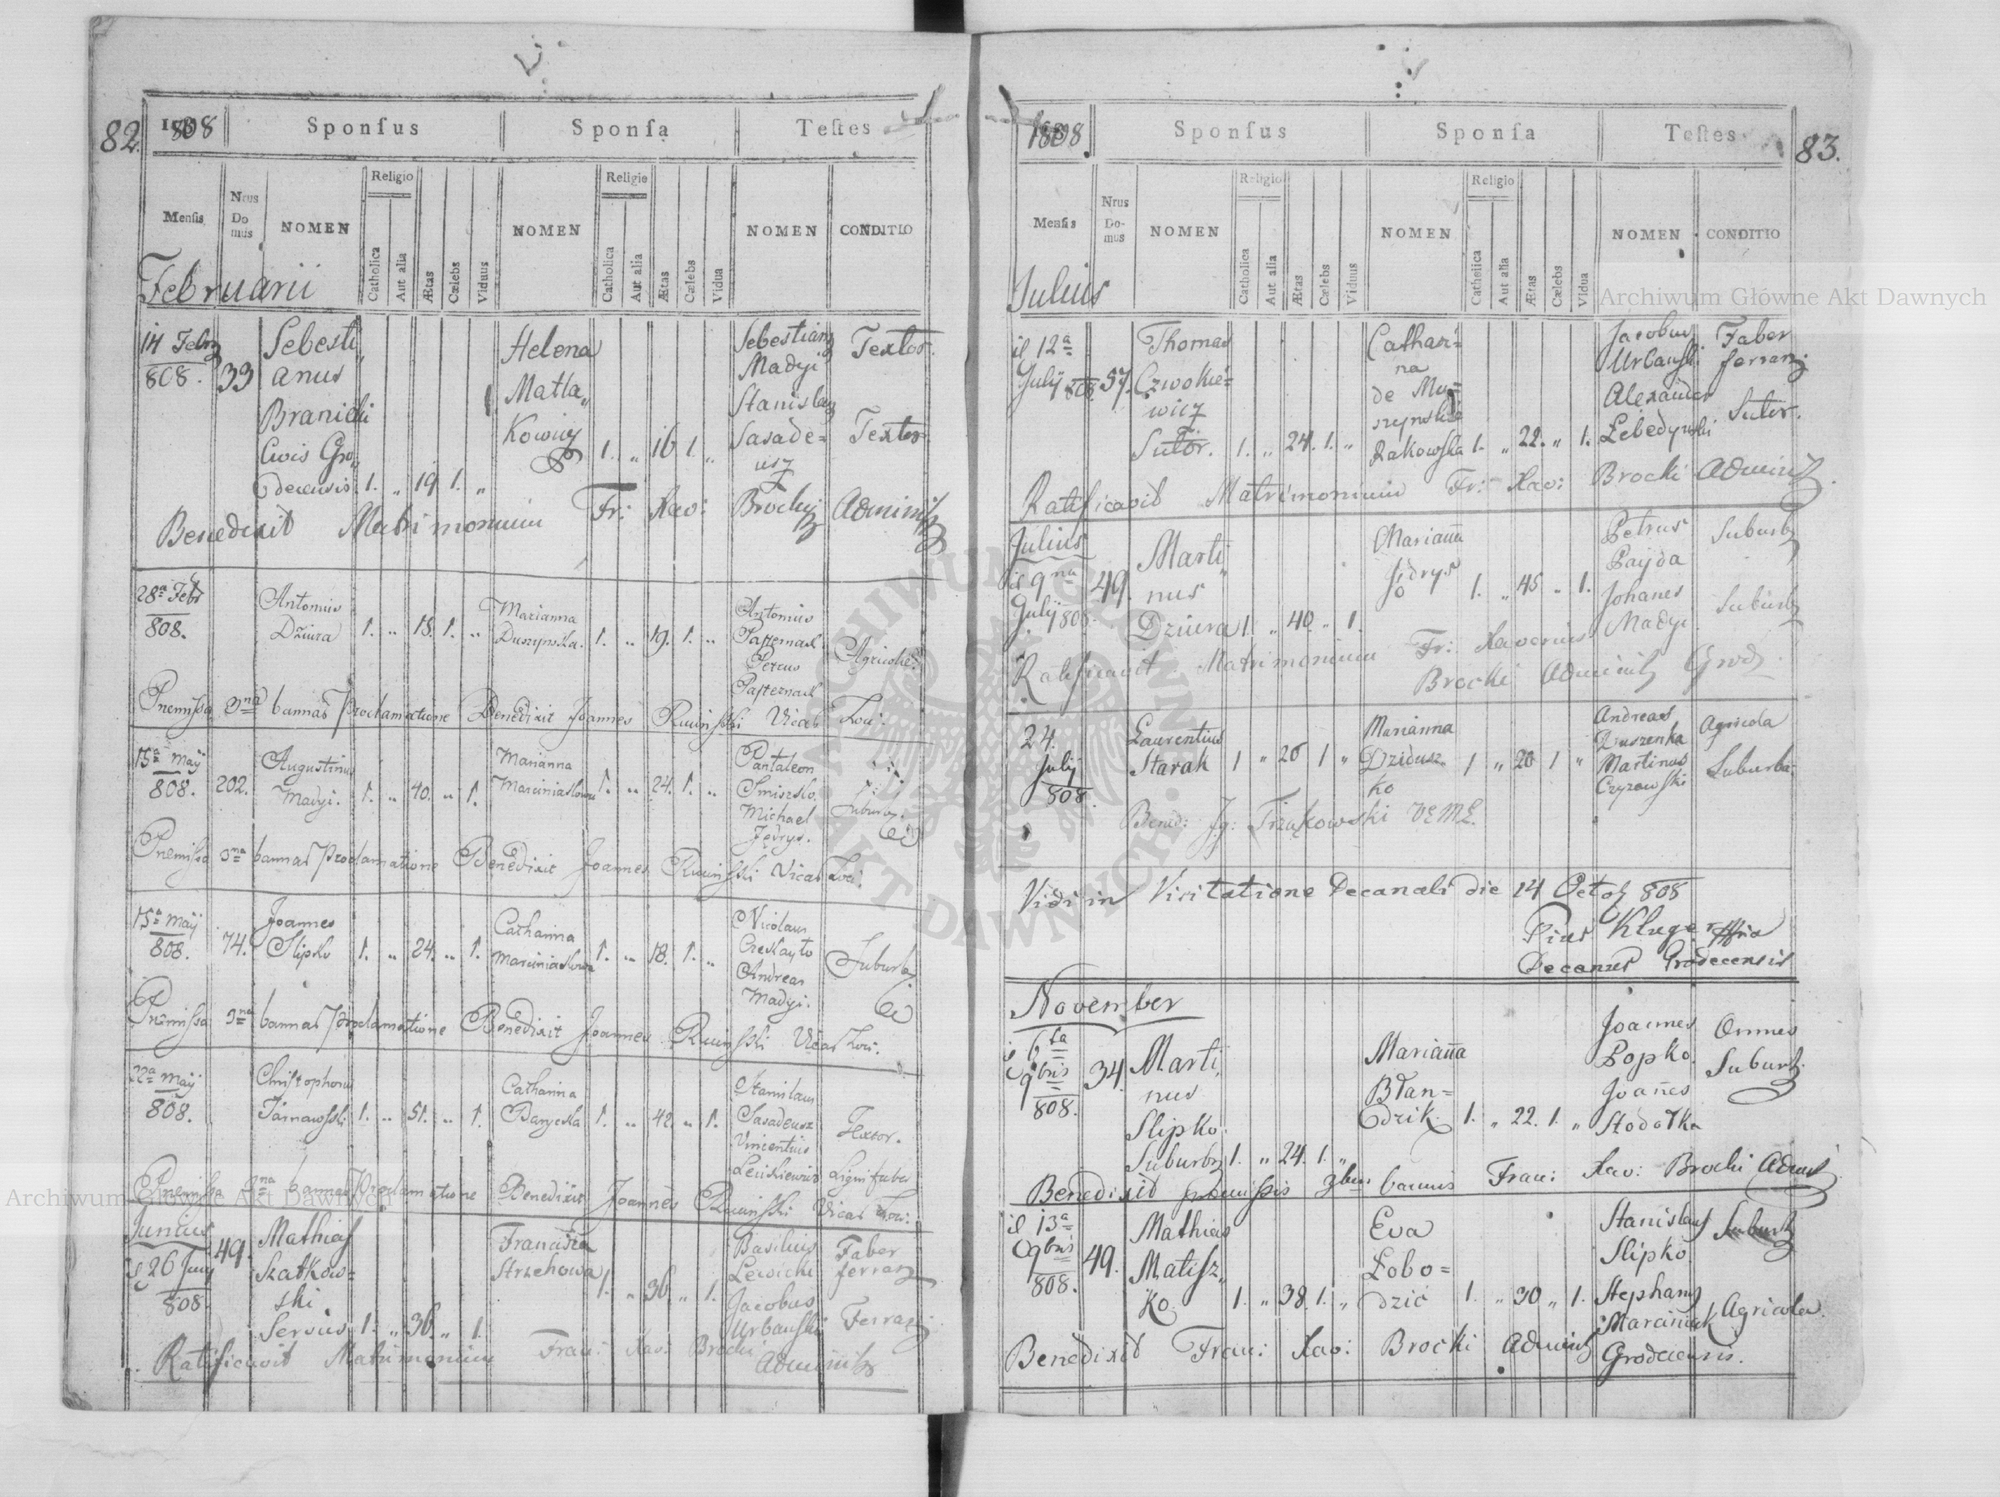 82.
1808
Sponsus
Sponsa
Testes
Mensis
Nrus Do mus
NOMEN
Religio
Catholica
Aut alia
Ætas
Cœlebs
Viduus
NOMEN
Religio
Catholica
Aut alia
Ætas
Cœlebs
Vidua
NOMEN
CONDITIO
Februarii
14 Febr
808.
33
Sebesti„
anus
Branicki
Civis Gro„
decensis 1. „ 19 1. „
Helena
Matla„
Kowicz
1. „ 16 1. „
Sebestian
Madyi
Stanislaus
Sasade=
usz
Textor.
Textor
Benedixit Matrimonium Fr: Xav: Brocki Administ
28a Febr
808.
Antonius
Dziura 1. „ 18. 1. „
Marianna
Duszynska. 1. „ 19. 1. „
Antonius
Pasternak
Petrus
Pasternak
Agricolae
Premissa 3na bannas Proclamatione Benedixit Joannes Vicar Loci.
15a Maÿ
808.
202.
Augustinus
Madyi. 1. „ 40. „ 1.
Marianna
Marciniakowa 1. „ 24. 1. „
Pantaleon
Smiszko.
Michael
Jędrys.
Suburb.
Premissa 3na bannas Proclamatione Benedixit Joannes Vicar Loci.
15a Maÿ
808.
74.
Joannes
Slipko 1. „ 24. „ 1.
Catharina
Marciniakowa 1. „ 18. 1. „
Nicolaus
Andreas
Madyi.
Suburb
Premissa 3na bannas Proclamatione Benedixit Joannes Vicar Loci.
22a Maÿ
808.
Christophorus
Tarnawski 1. „ 51. „ 1.
Catharina
1. „ 42. „ 1.
Stanislaus
Sasadeusz
Vincentius
Textor.
Ligni faber
Premissa 3na bannas Proclamatione Benedixit Joannes Vicar Loci.
Junius
26 Juny
808.
49.
Mathias
Szatkow=
ski
Servus 1. „ 36 „ 1.
Francisca
Strzehowa 1. „ 36. „ 1.
Basilius
Lewicki
Jacobus
Urbanski
Faber
ferrar
Ferrar
Ratificavit Matrimonium Fran: Xav: Brocki
Administ
83.
1808.
Sponsus
Sponsa
Testes
Mensis
Nrus Do- mus
NOMEN
Religio
Catholica
Aut alia
Ætas
Cœlebs
Viduus
NOMEN
Religio
Catholica
Aut alia
Ætas
Cœlebs
Vidua
NOMEN
CONDITIO
Julius
12a
July 808
57.
Thomas
Czwokie=
wicz
Sutor. 1. „ 24. 1. „
Cathari=
na
de Mu=
szynskie
Rakowska 1. „ 22. „ 1.
Jacobus
Urbanski
Alexander
Lebedynski
Faber
ferrar
Sutor.
Ratificavit Matrimonium Fr: Xav: Brocki Administ
Julius
9na
July 808.
49.
Marti„
nus
Dziura 1. „ 40. „ 1.
Marianna
Jędrys 1. „ 45 „ 1.
Petrus
Payda
Johanes
Madyi.
Suburb
Suburb
Ratificavit Matrimonium Fr: Xaverius
Brocki Administ Grod.
24.
July
808.
Laurentius
Starak 1 „ 26 1 „
Marianna
Dzidusz
ko 1 „ 20 1 „
Andreas
Duszenka
Martinus
Czyzowski
Agricola
Suburba:
Bened: Ig: Trzakowski
Vidi in Visitatione Decanali die 14 Octob 808
Pius Kluger
Decanus Grodecensis
November
6ta
9bris
808.
34.
Marti„
nus
Slipko.
Suburb 1. „ 24. 1. „
Marianna
Błan=
dzik. 1. „ 22. 1. „
Joannes
Popko.
Joannes
Stodołka
Omnes
Suburb.
Benedixit premissis 3bus bannis Fran: Xav: Brocki Admist
13a
9bris
808.
49.
Mathias
Matisz„
Ko. 1. „ 38. 1. „
Eva
Łobo=
dzic 1. „ 30 „ 1.
Stanislaus
Slipko.
Stephany
Marciniak
Grodecensis.
Suburb
Agricola.
Benedixit Fran: Xav: Brocki Administ
Archiwum Główne Akt Dawnych
Archiwum Główne Akt Dawnych
ARCHIWUM GŁÓWNE AKT DAWNYCH